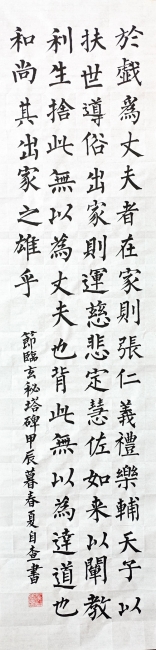 於戲為丈夫者在家則張仁義禮樂輔天子以
扶世導俗出家則運慈悲定慧佐如来以闡教
利生捨此無以為丈夫也背此無以為達道也
和尚其出家之雄乎
節臨玄秘塔碑甲辰暮春夏自查書